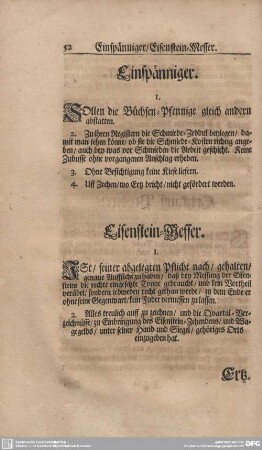 52 Einspänniger/Eisenstein-Messer.
Einspänniger.
1.
SOllen die Büchsen-Pfennige gleich andern
abstatten.
2. Zu ihren Registern die Schmiede-Zeddul beylegen/ da-
mit man sehen könne/ ob sie die Schmiede-Kosten richtig ange-
ben/ auch bey was vor Schmieden die Arbeit geschicht. Keine
Zubusse ohne vorgangenen Anschlag erheben.
3. Ohne Besichtigung keine Kiese liefern.
4. Uff Zechen/ wo Ertz bricht/ nicht gefördert werden.
Eisenstein-Messer.
1.
ISt/ seiner abgelegten Pflicht nach/ gehalten/
genaue Auffsicht zu haben/ daß bey Messung der Eisen-
steine die rechte eingesetzte Tonne gebraucht/ und kein Vortheil
verübet/ sondern iedweden recht gethan werde/ zu dem Ende er
ohne seine Gegenwart/ kein Fuder vermessen zu lassen.
2. Alles treulich auff zu zeichnen/ und die Quartal-Ver-
zeichnüsse/ zu Einbringung des Eisenstein-Zehendens/ und Wa-
gegelds/ unter seiner Hand und Siegel/ gehöriges Orts
einzugeben hat.
Ertz.